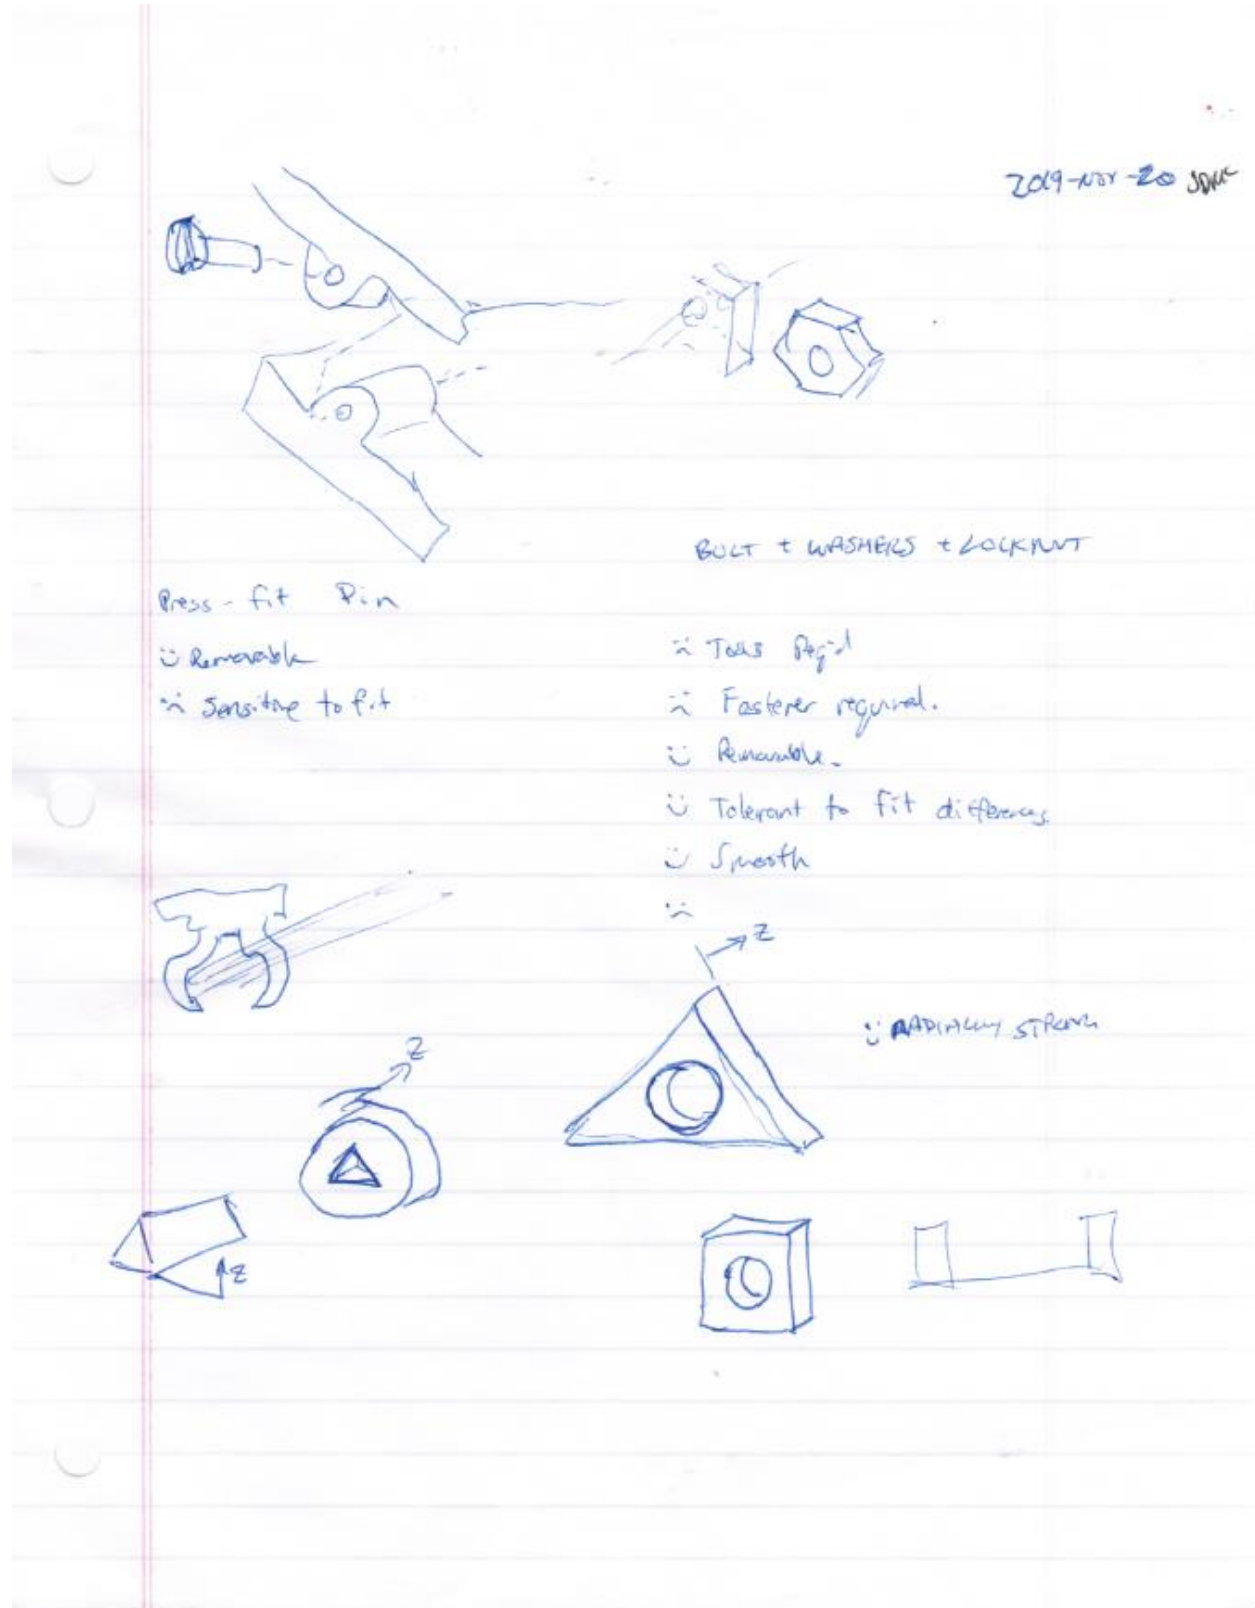 2019-NOV-20
BOLT + WASHERS + LOCKNUT
Press-fit Pin
:) Removable
:( Sensitive to fit
:( Tools Req'd
:( Fastener required.
:) Removable.
:) Tolerant to fit differences.
:) Smooth
:(
Z
:) RADIALLY STRONG
Z
Z